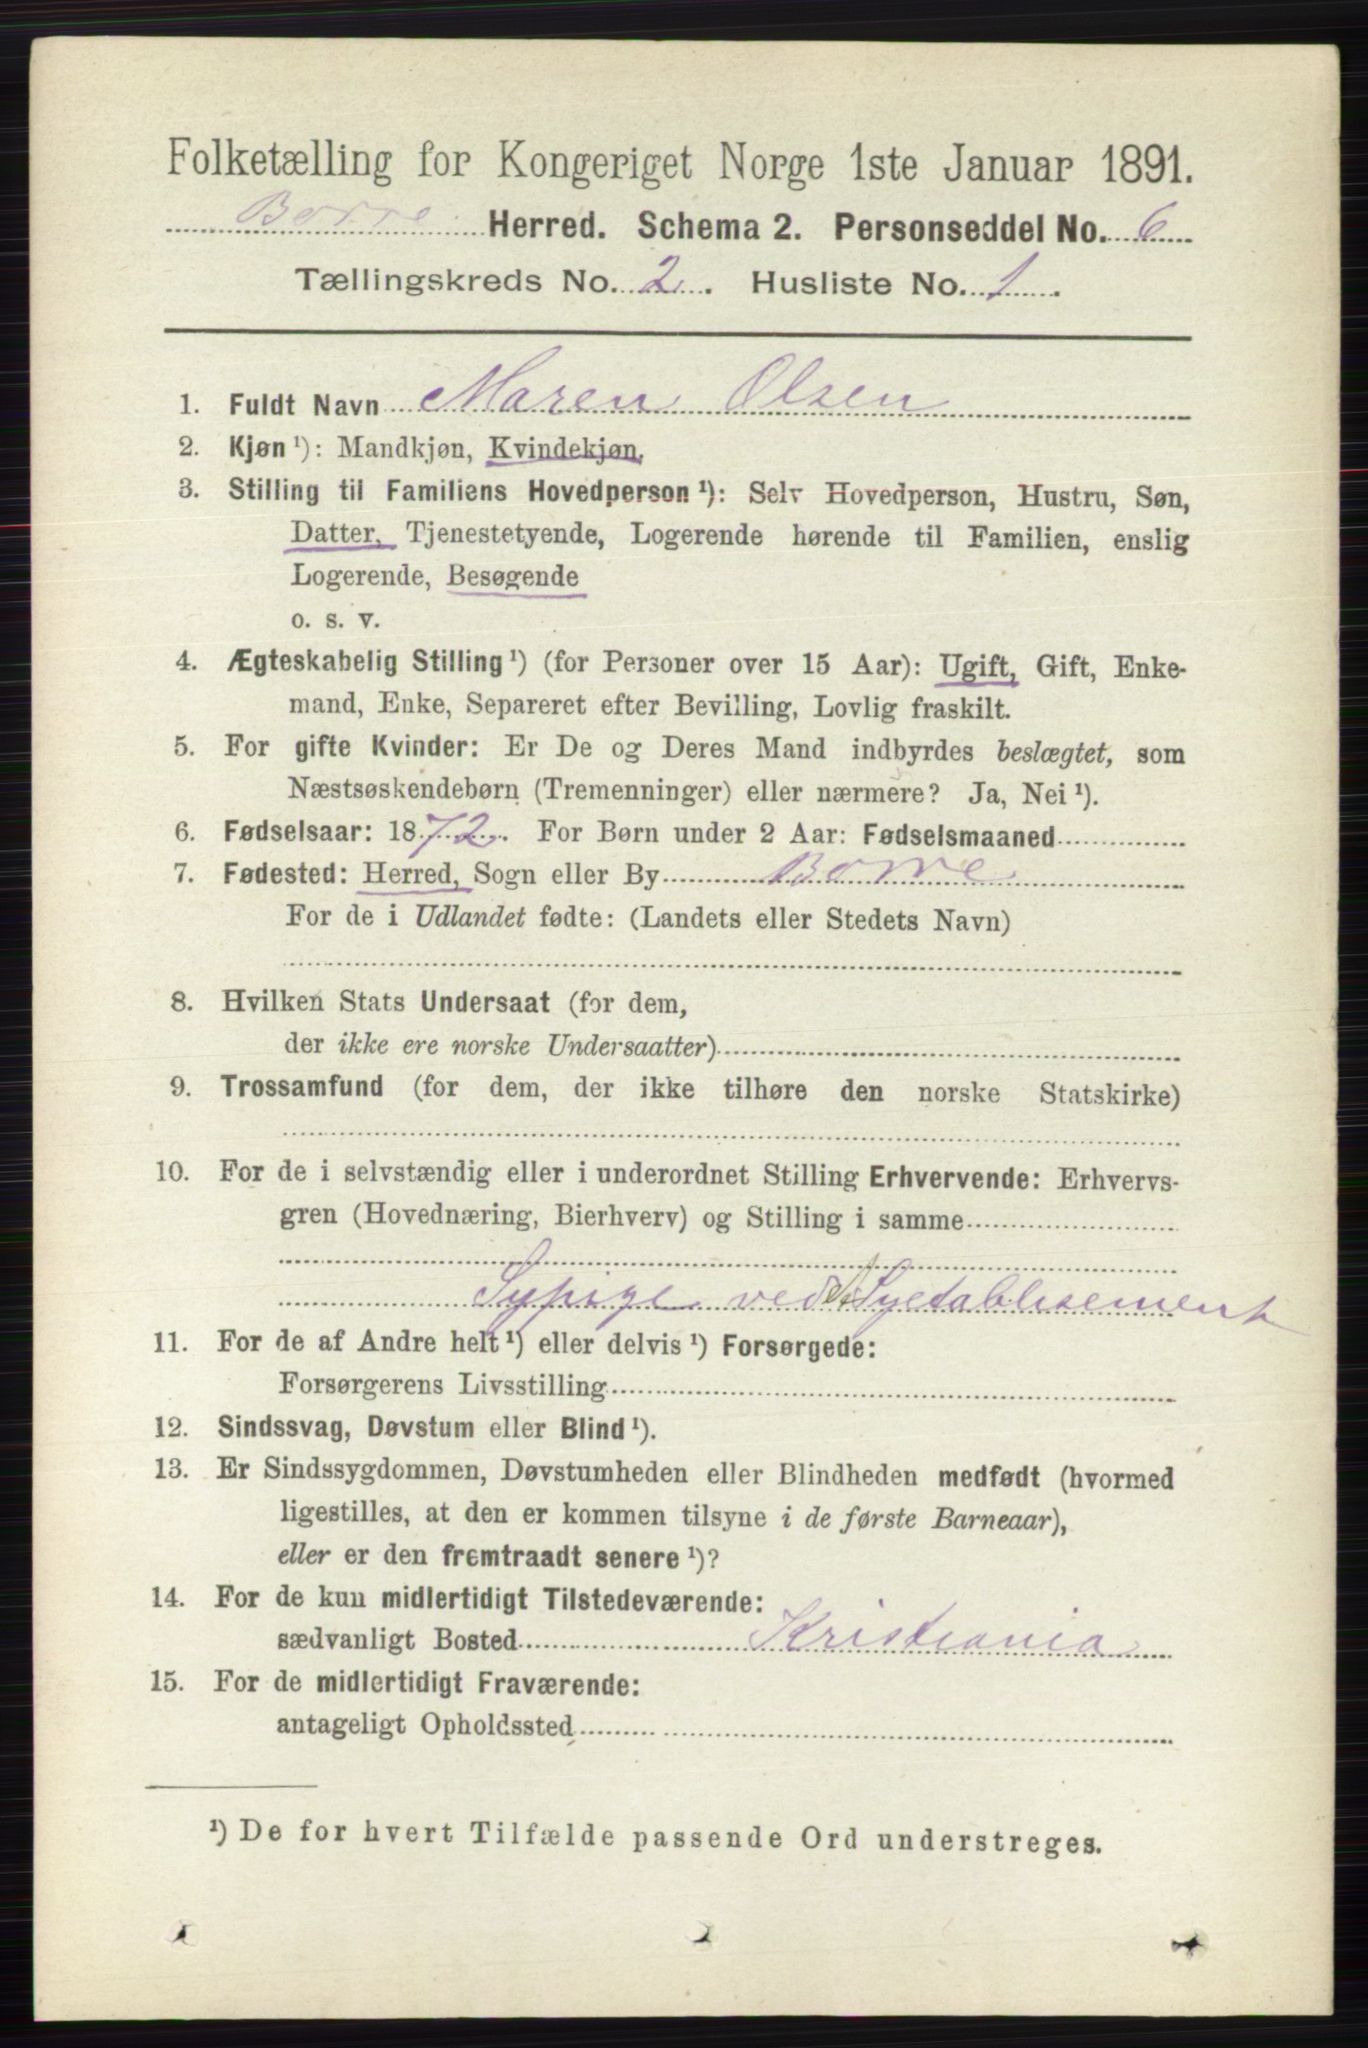 Folketælling for Kongeriget Norge 1ste Januar 1891.
Borre Herred. Schema 2. Personseddel No. 6
Tællingskreds No. 2. Husliste No. 1.
1. Fuldt Navn Maren Olsen
2. Kjøn ¹): Mandkjøn, Kvindekjøn.
3. Stilling til Familiens Hovedperson ¹): Selv Hovedperson, Hustru, Søn,
Datter, Tjenestetyende, Logerende hørende til Familien, enslig
Logerende, Besøgende
o. s. v.
4. Ægteskabelig Stilling ¹) (for Personer over 15 Aar): Ugift, Gift, Enke-
mand, Enke, Separeret efter Bevilling, Lovlig fraskilt.
5. For gifte Kvinder: Er De og Deres Mand indbyrdes beslægtet, som
Næstsøskendebørn (Tremenninger) eller nærmere? Ja, Nei ¹).
6. Fødselsaar: 1872. For Børn under 2 Aar: Fødselsmaaned
7. Fødested: Herred, Sogn eller By Borre
For de i Udlandet fødte: (Landets eller Stedets Navn)
8. Hvilken Stats Undersaat (for dem,
der ikke ere norske Undersaatter)
9. Trossamfund (for dem, der ikke tilhøre den norske Statskirke)
10. For de i selvstændig eller i underordnet Stilling Erhvervende: Erhvervs-
gren (Hovednæring, Bierhverv) og Stilling i samme
Sypige ved Syetablisement
11. For de af Andre helt ¹) eller delvis ¹) Forsørgede:
Forsørgerens Livsstilling
12. Sindssvag, Døvstum eller Blind ¹).
13. Er Sindssygdommen, Døvstumheden eller Blindheden medfødt (hvormed
ligestilles, at den er kommen tilsyne i de første Barneaar),
eller er den fremtraadt senere ¹)?
14. For de kun midlertidigt Tilstedeværende:
sædvanligt Bosted Kristiania
15. For de midlertidigt Fraværende:
antageligt Opholdssted
¹) De for hvert Tilfælde passende Ord understreges.